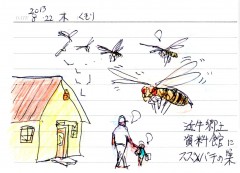 2013
22 木 くもり
近牛郷土
資料館に
スズメバチの巣